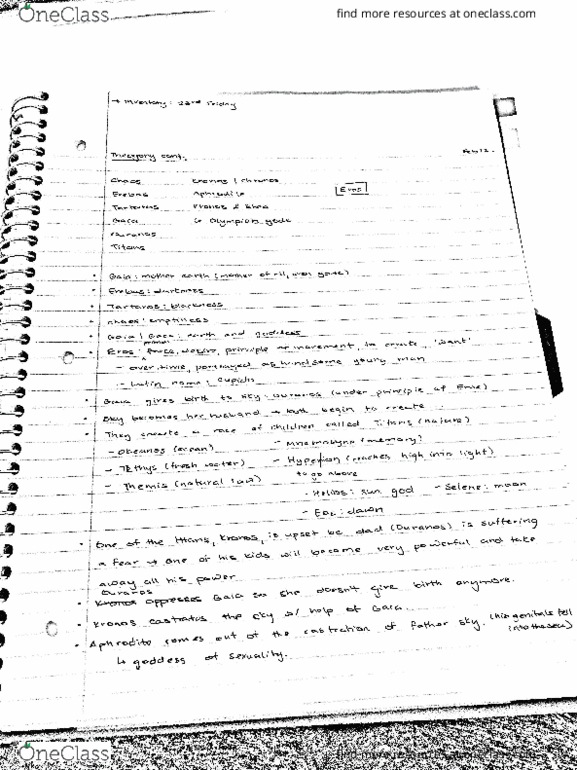 OneClass
find more resources at oneclass.com
→ Inventory: 23rd Friday
Theogony cont. Feb 12.
Chaos Kronos / Chronos
Erebus Aphrodite Eros
Tartarus Kronos & Rhea
Gaea ↳ Olympians gods
Ouranos
Titans
• Gaia: mother earth (mother of all,
• Erebus: darkness
• Tartaros: blackness
• chaos: emptiness
• Gaia / Gaea: earth and goddess
• Eros: force, desire, principle to create, 'want'
- over time, portrayed as handsome young man
- latin name: Cupid
• Gaea gives birth to sky: Ouranos (under principle of Eros)
• Sky becomes her husband → both begin to create
• They create a race of children called Titans (nature)
- Okeanos (ocean) - Mnemosyne (memory)
- Tethys (fresh water) - Hyperion (reaches high into light)
- Themis (natural law) to go above
- Helios: sun god - Selene: moon
- Eos: dawn
• One of the titans, Kronos, is upset bc dad (Ouranos) is suffering
a fear → one of his kids will become very powerful and take
away all his power
Ouranos
• Kronos oppresses Gaia so she doesn't give birth anymore.
• Kronos castrates the sky w/ help of Gaia.
• Aphrodite comes out of the castration of father sky. (his genitals fell
into the sea)
↳ goddess of sexuality.
OneClass
find more resources at oneclass.com